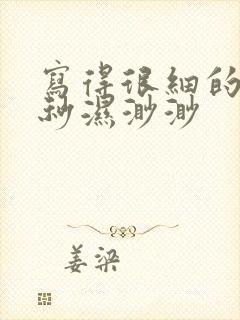 寫得很細的
秒濕渺渺
姜梁